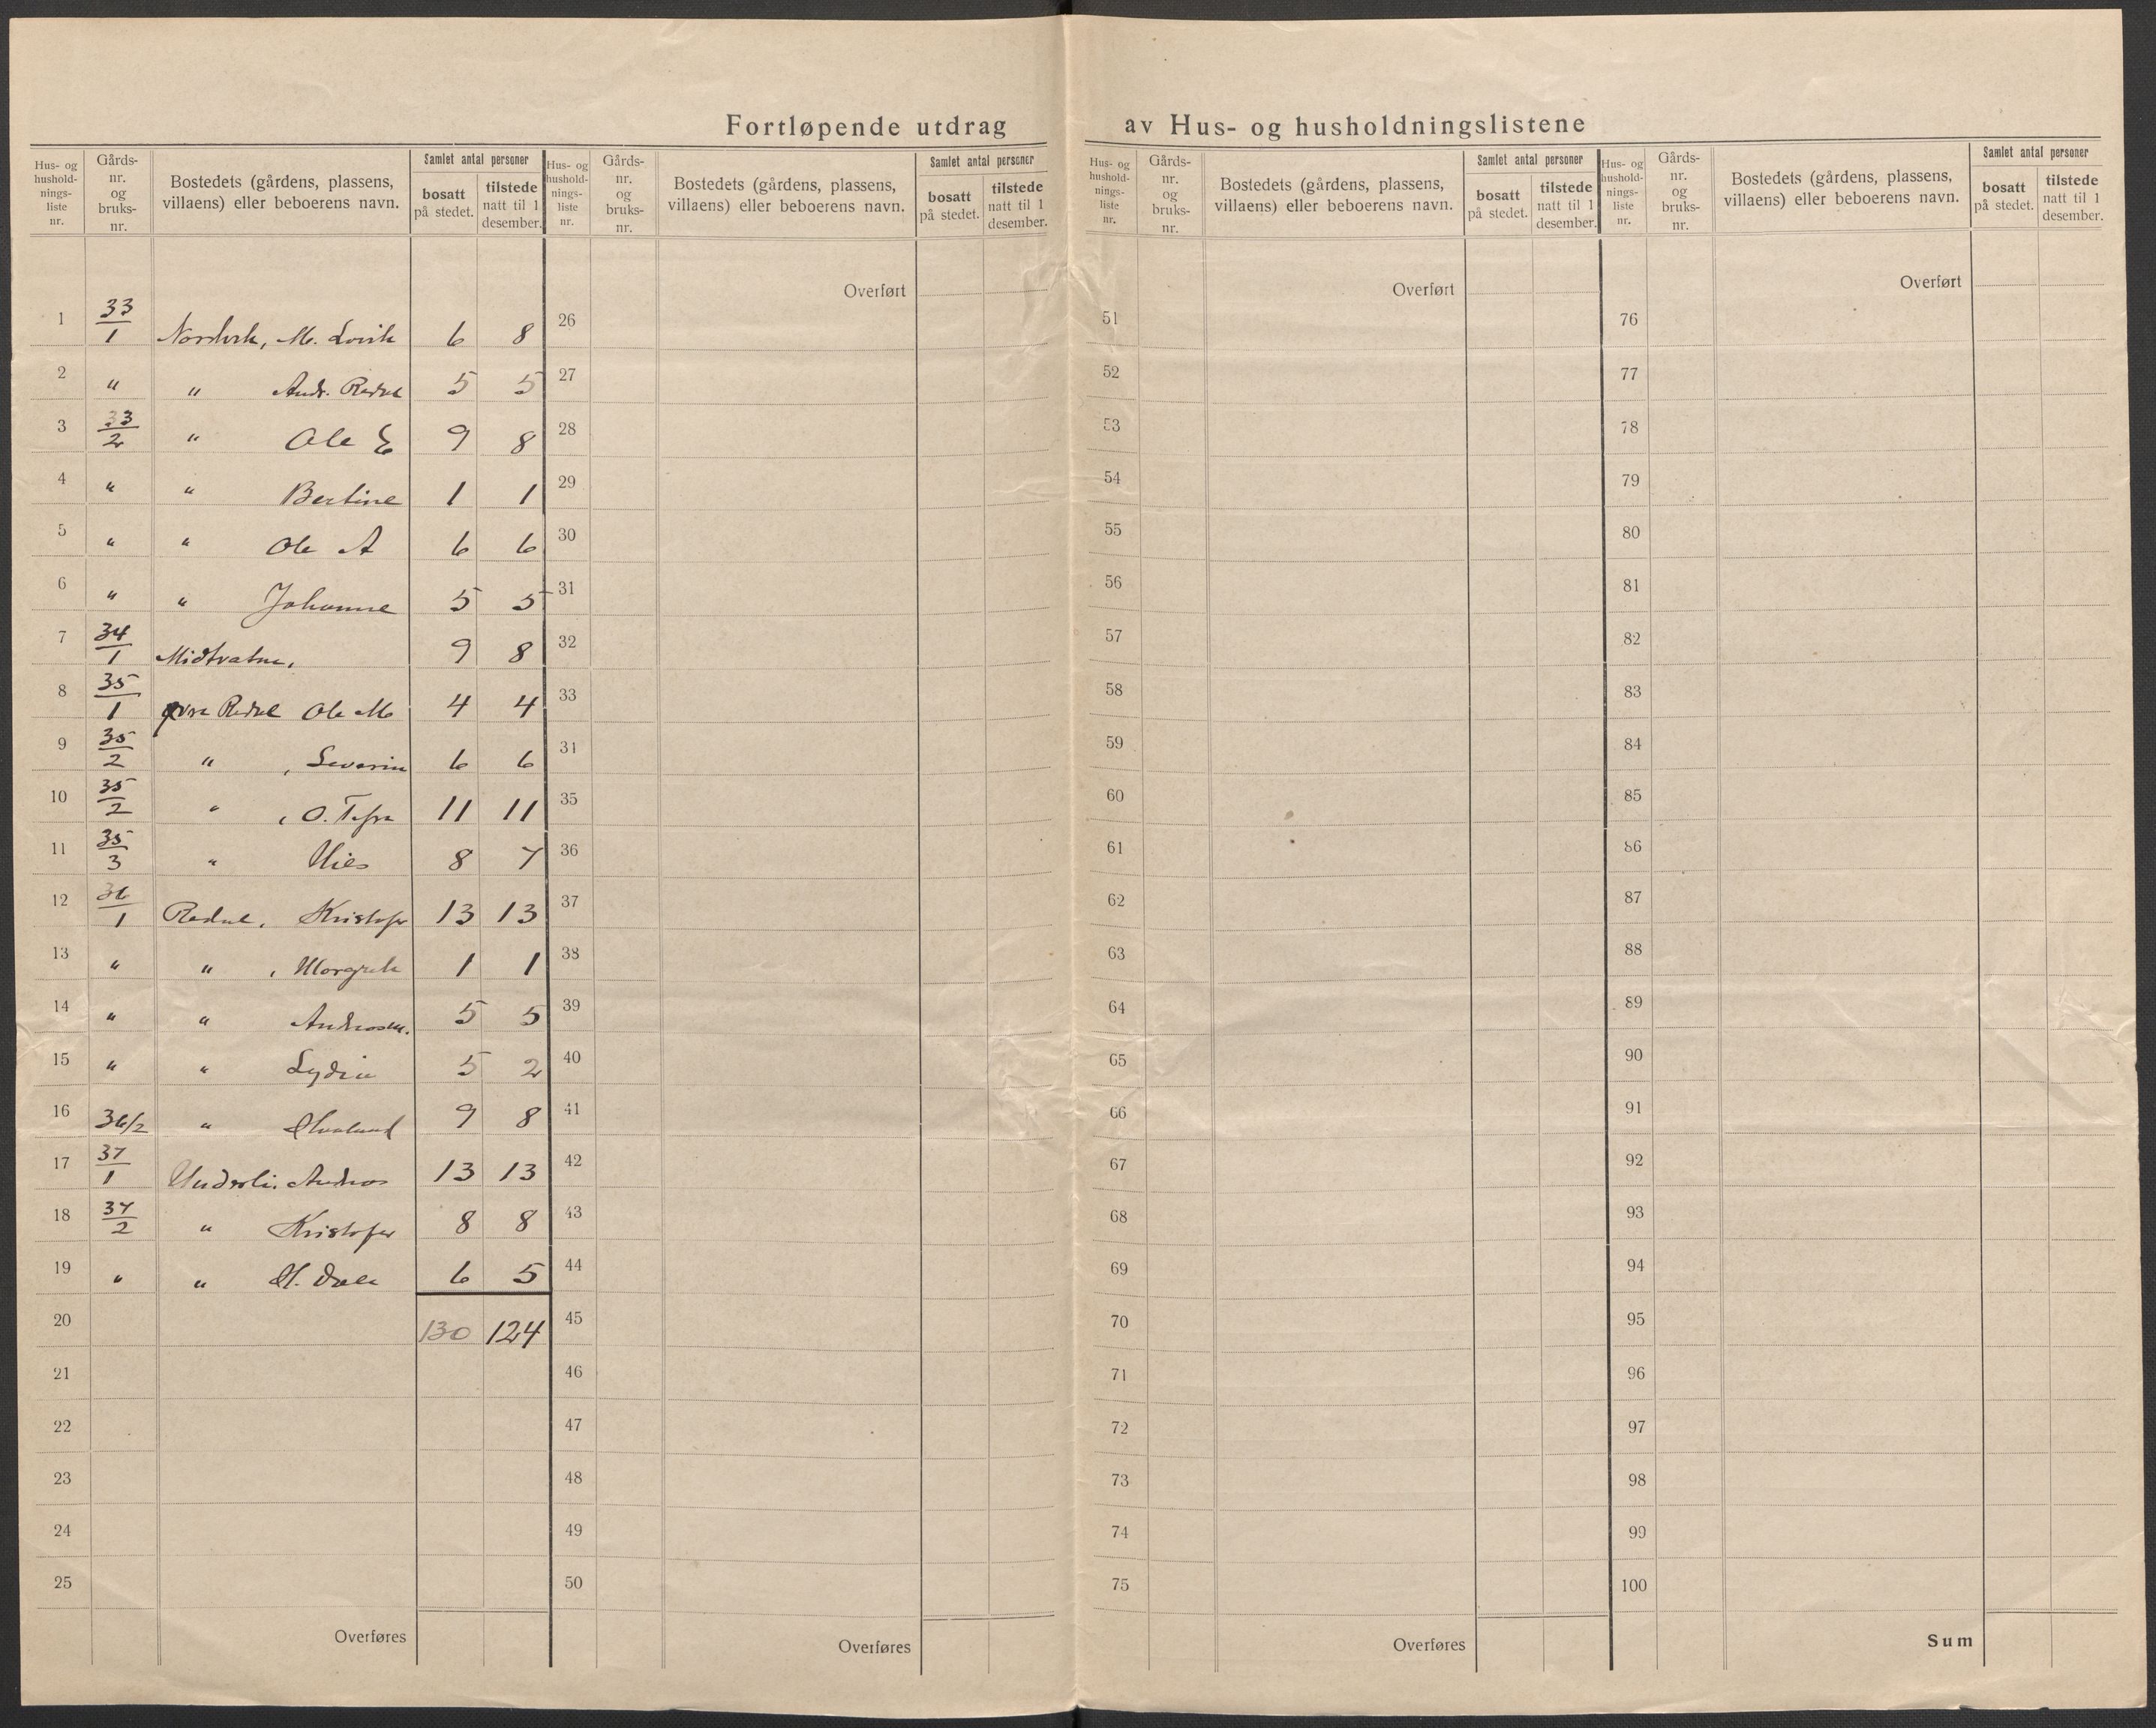 Fortløpende utdrag av Hus- og husholdningslistene
Hus- og hushold-nings-liste nr. Gårds-nr. og bruks-nr. Bostedets (gårdens, plassens, villaens) eller beboerens navn. Samlet antal personer bosatt på stedet. tilstede natt til 1 desember.
Hus- og hushold-nings-liste nr. Gårds-nr. og bruks-nr. Bostedets (gårdens, plassens, villaens) eller beboerens navn. Samlet antal personer bosatt på stedet. tilstede natt til 1 desember.
Hus- og hushold-nings-liste nr. Gårds-nr. og bruks-nr. Bostedets (gårdens, plassens, villaens) eller beboerens navn. Samlet antal personer bosatt på stedet. tilstede natt til 1 desember.
Hus- og hushold-nings-liste nr. Gårds-nr. og bruks-nr. Bostedets (gårdens, plassens, villaens) eller beboerens navn. Samlet antal personer bosatt på stedet. tilstede natt til 1 desember.
Overført Overført Overført
1 33/1 M. 6 8 26 51 76
2 " " Andr. 5 5 27 52 77
3 33/2 " Ole E 9 8 28 53 78
4 " " Bertine 1 1 29 54 79
5 " " Ole A 6 6 30 55 80
6 " " Johanne 5 5 31 56 81
7 34/1 Midtvatne, 9 8 32 57 82
8 35/1 øvre Redal Ole M 4 4 33 58 83
9 35/2 " , Severin 6 6 34 59 84
10 35/2 " , O. 11 11 35 60 85
11 35/3 " Nils 8 7 36 61 86
12 36/1 Redal, Kristofer 13 13 37 62 87
13 " " , Margrete 1 1 38 63 88
14 " " 5 5 39 64 89
15 " " Lydia 5 2 40 65 90
16 36/2 " 9 8 41 66 91
17 37/1 Underli, Andreas 13 13 42 67 92
18 37/2 " Kristofer 8 8 43 68 93
19 " " 6 5 44 69 94
20 130 124 45 70 95
21 46 71 96
22 47 72 97
23 48 73 98
24 49 74 99
25 50 75 100
Overføres Overføres Overføres Sum